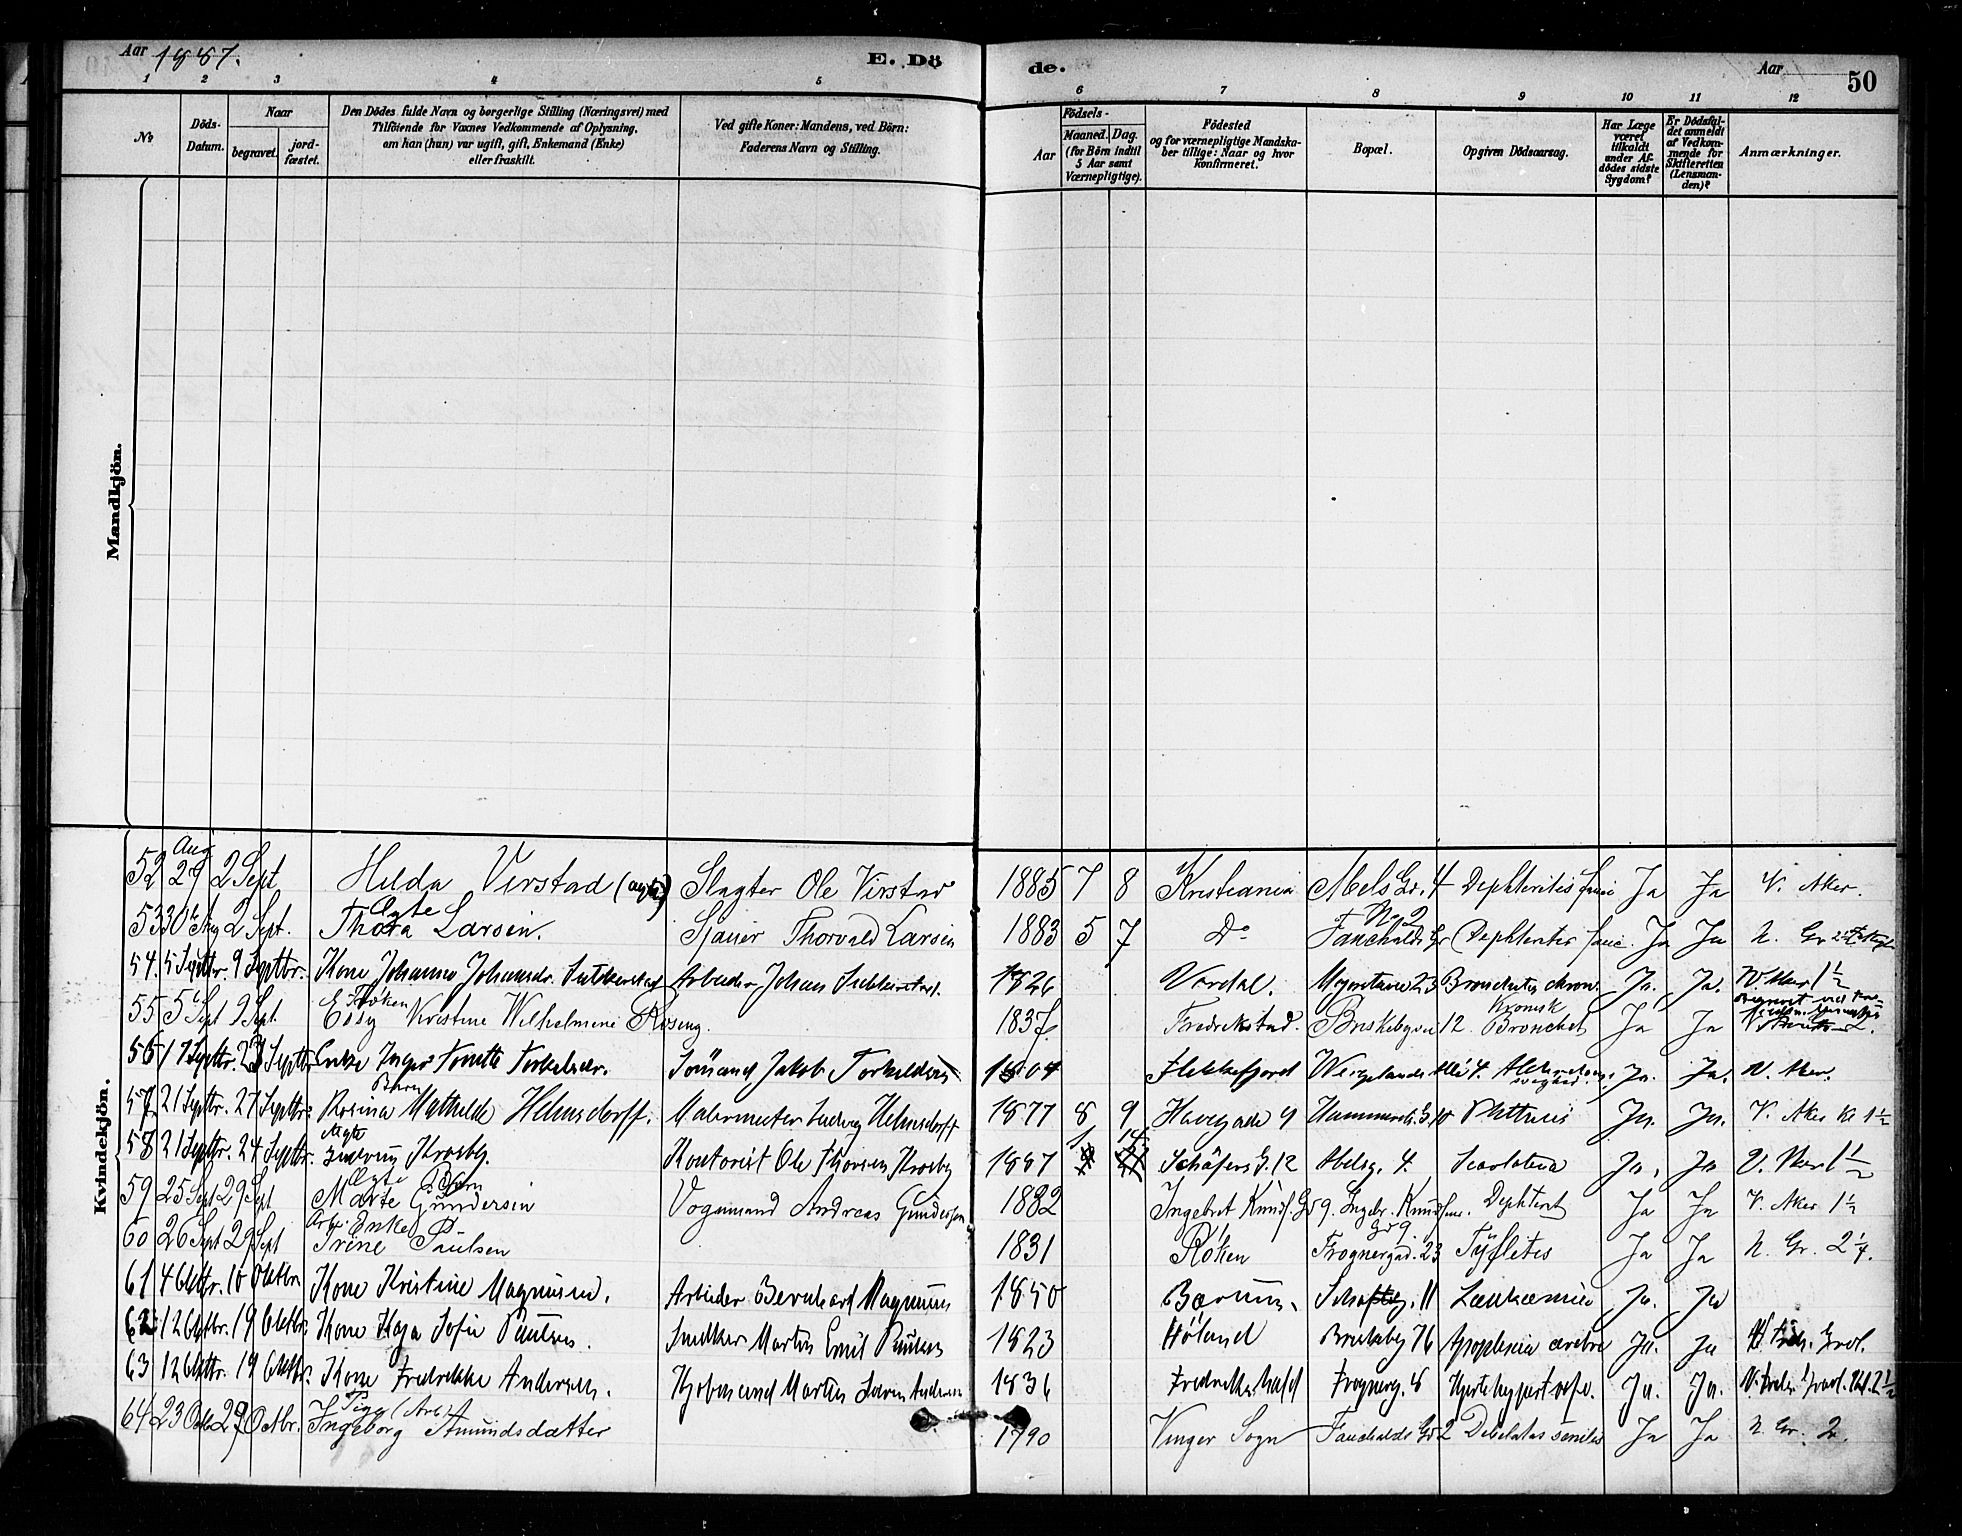 Aar 1887. E. Dö de. Aar 50
1 2 3 4 5 6 7 8 9 10 11 12
No
Döds-Datum.
Naar begravet. jord-fæstet.
Den Dödes fulde Navn og borgerlige Stilling (Næringsvei) med
Tilföiende for Voxnes Vedkommende af Oplysning,
om han (hun) var ugift, gift, Enkemand (Enke)
eller fraskilt.
Ved gifte Koner: Mandens, ved Börn:
Faderens Navn og Stilling.
Födsels-
Aar
Maaned. Dag.
(for Börn indtil
5 Aar samt
Værnepligtige).
Födested
og for værnepligtige Mandska-
ber tillige: Naar og hvor
konfirmeret.
Bopæl.
Opgiven Dödsaarsag.
Har Læge
været
tilkaldt
under Af-
dödes sidste
Sygdom?
Er Dödsfal-
det anmeldt
af Vedkom-
mende for
Skifteretten
(Lensman-
den)?
Anmærkninger.
Mandkjön.
Kvindekjön.
52 Aug 29 2 Sept Hilda Virstad (ægte) Slagter Ole Virstad 1885 7 8 Kristiania Abels Gd. 4 Dephteritis fauc Ja Ja V. Aker.
53 30 Aug 2 Sept. Ægte Thora Larsen. Sjauer Thorvald Larsen 1883 5 7 Do Fauchalds Gr No 2 Dephteritis fauc. Ja Ja N. Gr
54. 5 Septbr. 9 Septbr. Kone Johanne Johansdr. Arbeider Johan 1826 Vardal. 23 Bronchitis chron. Ja. Ja. V. Aker 1 1/2
55 5 Sept 9 Sept. Frøken Kristine Wilhelmine Rosing. 1837 Fredrikstad. Briskebyvei 12 Kronisk Bronchit Ja Ja
56 17 Septbr. 23 Septbr Enke Inger Tonette Torkelsdr. Sömand Jakob Torkildsen 1804 Flekkefjord Wergelands Allé 4. Ja. Ja. V. Aker.
57 21 Septbr. 27 Septbr. Barn Rosina Mathilde Helmsdorff. Malermester Ludvig Helmsdorff 1877 8 9 Havegade 9 Hammersb. G. 10 Ja. Ja. V. Aker Kl 1 1/2
58 21 Septbr. 24 Septbr. Ægte Krosby. Kontorist Ole Thorsen Krosby 1887 1 14 Schäfers G. 12 Abelsg. 4. Scarlatina Ja. Ja V. Aker 1 1/2
59 25 Sept 29 Sept Ægte Barn Marte Gundersen Vognmand Andreas Gundersen 1882 Ingebret Knuds. Gd 9. Ingebr. Knudsens Gd 9. Dephterit Ja Ja V. Aker 1 1/2
60 26 Sept 29 Sept Arb. Enke Trine Paulsen 1831 Röken Frognergad. 23 Tyflitis Ja Ja N. Gr. 2 1/4.
61 4 Oktbr. 10 Oktbr Kone Kristine Magnusen. Arbeider Bernhard Magnusen 1850 Bærum. 11 Leukæmie Ja. Ja
62 12 Oktbr. 19 Oktbr. Kone Kaja Sofie Paulsen. Snedker Martin Emil Paulsen 1823 Höland Briskeby 76 Apoplexia cerebri Ja. Ja
63 12 Oktbr. 19 Oktbr. Kone Fredrikke Andersen. Kjøbmand Martin Andersen 1836 Fredrikshald Frognerg. 8 Ja. Ja.
64 23 Octb 29 Octbr. Pige (Arb.) Ingeborg Amundsdatter 1790 Vinger Sogn Fauchalds Gd 2 Debelitas senilis Ja Ja N. Gr. 2.